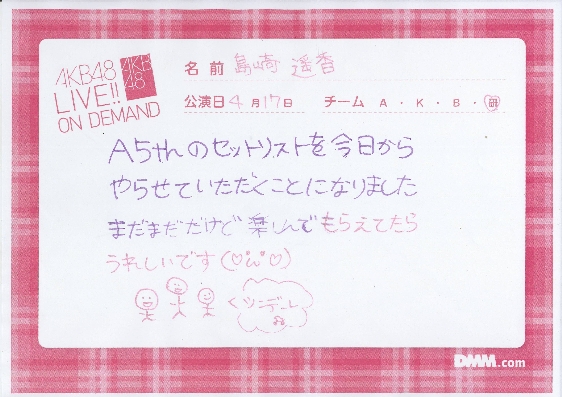 AKB48
LIVE!!
ON DEMAND
AKB
48
名前 島崎 遥香
公演日 4月17日 チーム A・K・B・研
Aちゃんのセットリストを今日から
やらせていただくことになりました
まだまだだけど 楽しんでもらえてたら
うれしいです(♡'ω'♡)
くツンデーレ
DMM.com